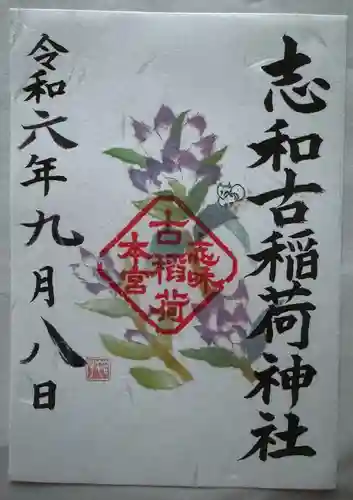 志和古稲荷神社
志味
古稲荷
本宮
令和六年九月八日